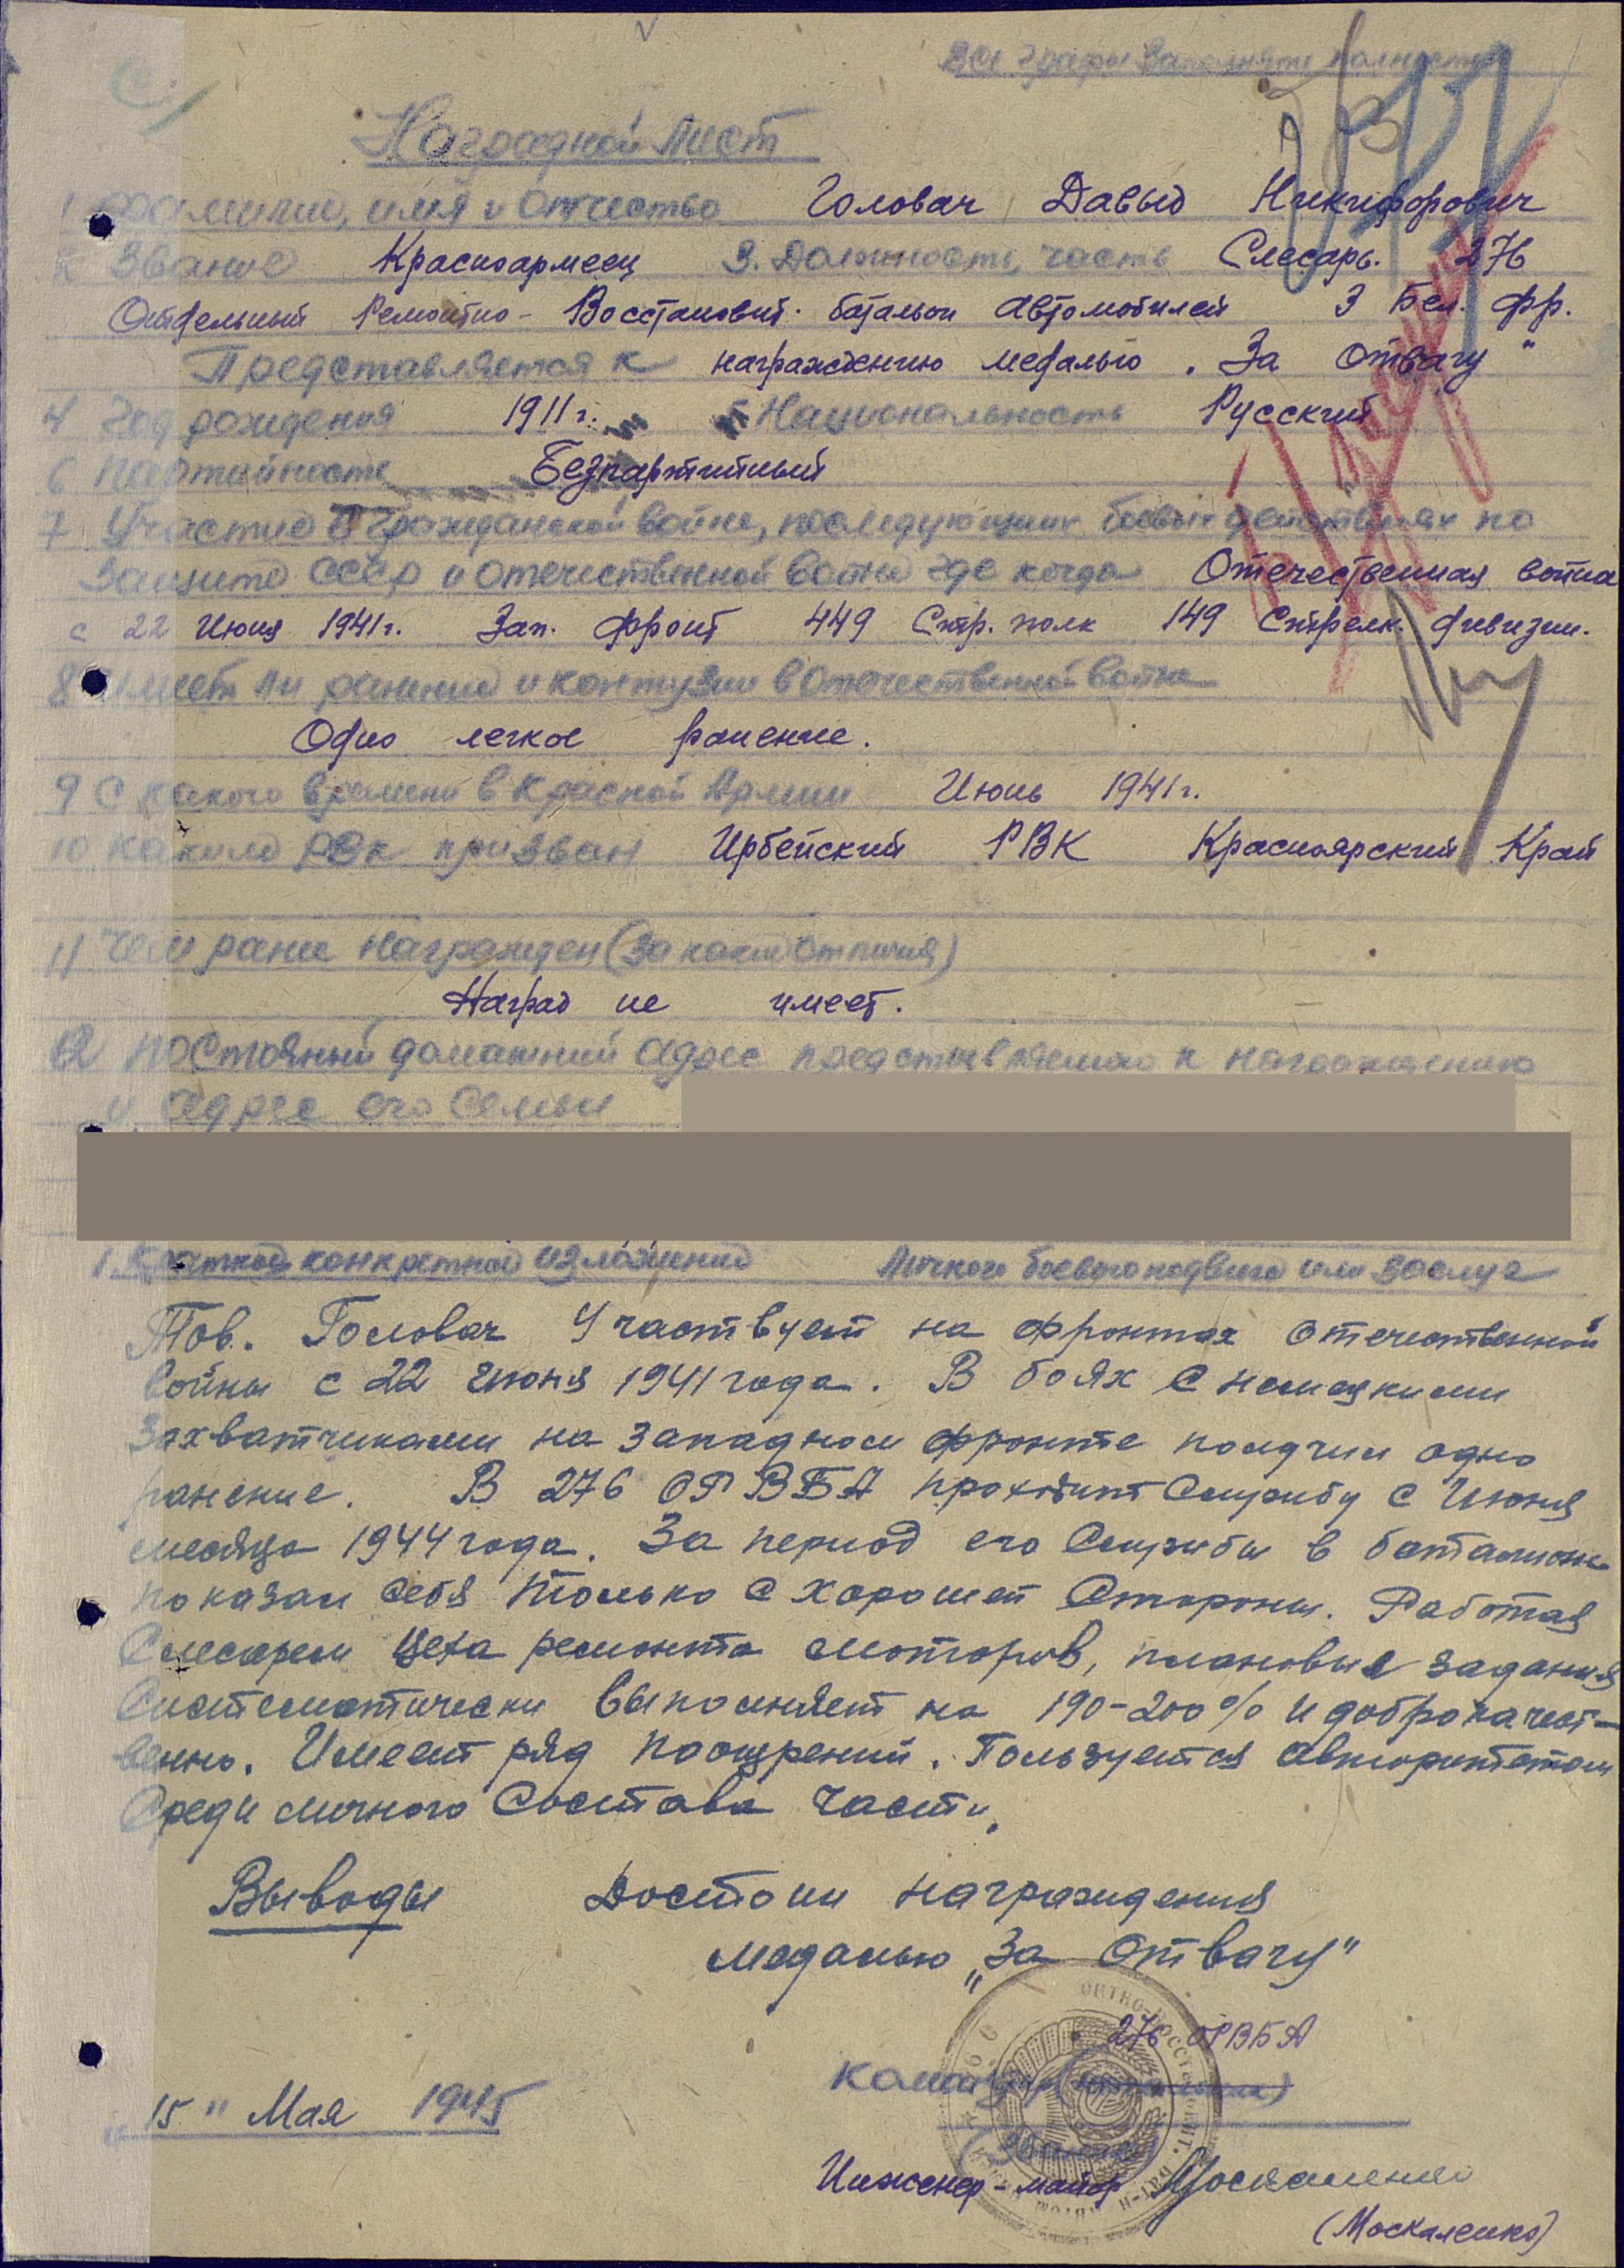 Все графы Заполнять полностью
Наградной Лист
1 Фамилию, имя и отчество Головач Давыд Никифорович
2 Звание Красноармеец 3. Должность, часть Слесарь. 276
Отдельный Ремонтно-Восстановит. батальон Автомобилей 3 Бел. фр.
Представляется к награждению медалью „За Отвагу"
4 Год рождения 1911 г. 5 Национальность Русский
6 Партийность Безпартийный
7 Участие в гражданской войне, последующих боевых действиях по
Защите СССР и отечественной войне где когда Отечественная война
с 22 Июня 1941 г. Зап. фронт 449 Стр. полк 149 Стрелк. дивизии.
8 Имеет ли ранения и контузии в Отечественной войне
Одно легкое ранение.
9 С какого времени в Красной Армии Июнь 1941 г.
10 Каким РВК призван Ирбейский РВК Красноярский Край
11 Чем ранее награжден (за какие отличия)
Наград не имеет.
12 Постояный домашний адрес представляемого к награждению
и адрес его семьи
1. Краткое конкретное изложение личного боевого подвига или заслуг
Тов. Головач Участвует на фронтах Отечественной
войны с 22 июня 1941 года. В боях с немецкими
захватчиками на западном фронте получил одно
ранение. В 276 ОРВБА проходит службу с Июня
месяца 1944 года. За период его службы в батальоне
показал себя только с хорошей Стороны. Работая
Слесарем цеха ремонта моторов, плановые задания
Систематически выполняет на 190-200% и доброкачест-
венно. Имеет ряд поощрений. Пользуется авторитетом
Среди личного Состава части.
Выводы Достоин награждения
медалью „За Отвагу"
276 ОРВБА
Командир
„15" Мая 1945
Инженер-майор Москаленко
(Москаленко)